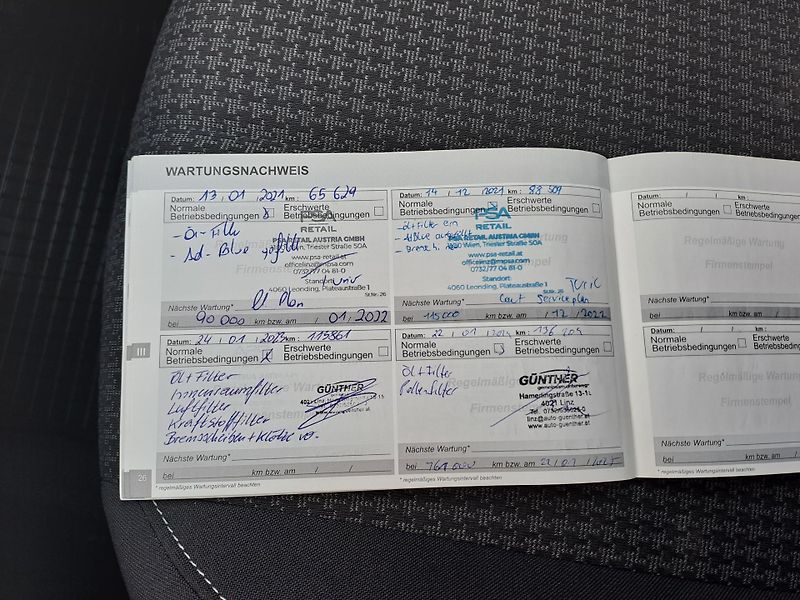 WARTUNGSNACHWEIS
Datum: 13 / 01 / 2021 km: 65 629
Normale Betriebsbedingungen
Erschwerte Betriebsbedingungen
- Öl-Filter
- Ad-Blue
PSA
RETAIL
PSA RETAIL AUSTRIA GMBH
Wien, Triester Straße 50A
www.psa-retail.at
officelinz@mpsa.com
0732/77 04 81-0
Standort:
4060 Leonding, Plateaustraße 1
St.Nr. 26
Nächste Wartung*
bei 90 000 km bzw. am / 01 / 2022
Datum: 14 / 12 / 2021 km: 83 509
Normale Betriebsbedingungen
Erschwerte Betriebsbedingungen
PSA
RETAIL
PSA RETAIL AUSTRIA GMBH
Wien, Triester Straße 50A
www.psa-retail.at
officelinz@mpsa.com
0732/77 04 81-0
Standort:
4060 Leonding, Plateaustraße 1
St.Nr. 26
Nächste Wartung* laut Serviceplan
bei 115000 km bzw. am / 12 / 2022
Datum: 24 / 01 / 2023 km: 113861
Normale Betriebsbedingungen
Erschwerte Betriebsbedingungen
Öl+Filter
Innenraumfilter
Luftfilter
Kraftstofffilter
Bremsscheiben + Klötze
GÜNTHER
Nächste Wartung*
bei km bzw. am / /
Datum: 22 / 01 / km: 136 209
Normale Betriebsbedingungen
Erschwerte Betriebsbedingungen
Öl+Filter
Pollenfilter
GÜNTHER
Hamerlingstraße 13-15
4021 Linz
linz@auto-guenther.at
www.auto-guenther.at
Nächste Wartung*
bei 161.000 km bzw. am 22 / 01 / 2025
26
III
* regelmäßiges Wartungsintervall beachten
* regelmäßiges Wartungsintervall beachten
Datum: / / km:
Normale Betriebsbedingungen
Regelmäßige Wartung
Firmenstempel
Nächste Wartung*
bei km bzw. am
Datum: / / km:
Normale Betriebsbedingungen
Regelmäßige Wartung
Firmenstempel
Nächste Wartung*
bei km bzw. am
* regelmäßiges Wartungsintervall beachten